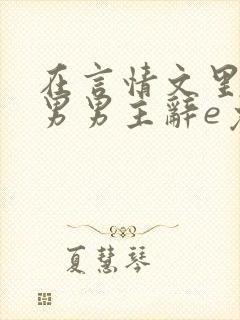 在言情文里
男男主辭e
夏慧琴